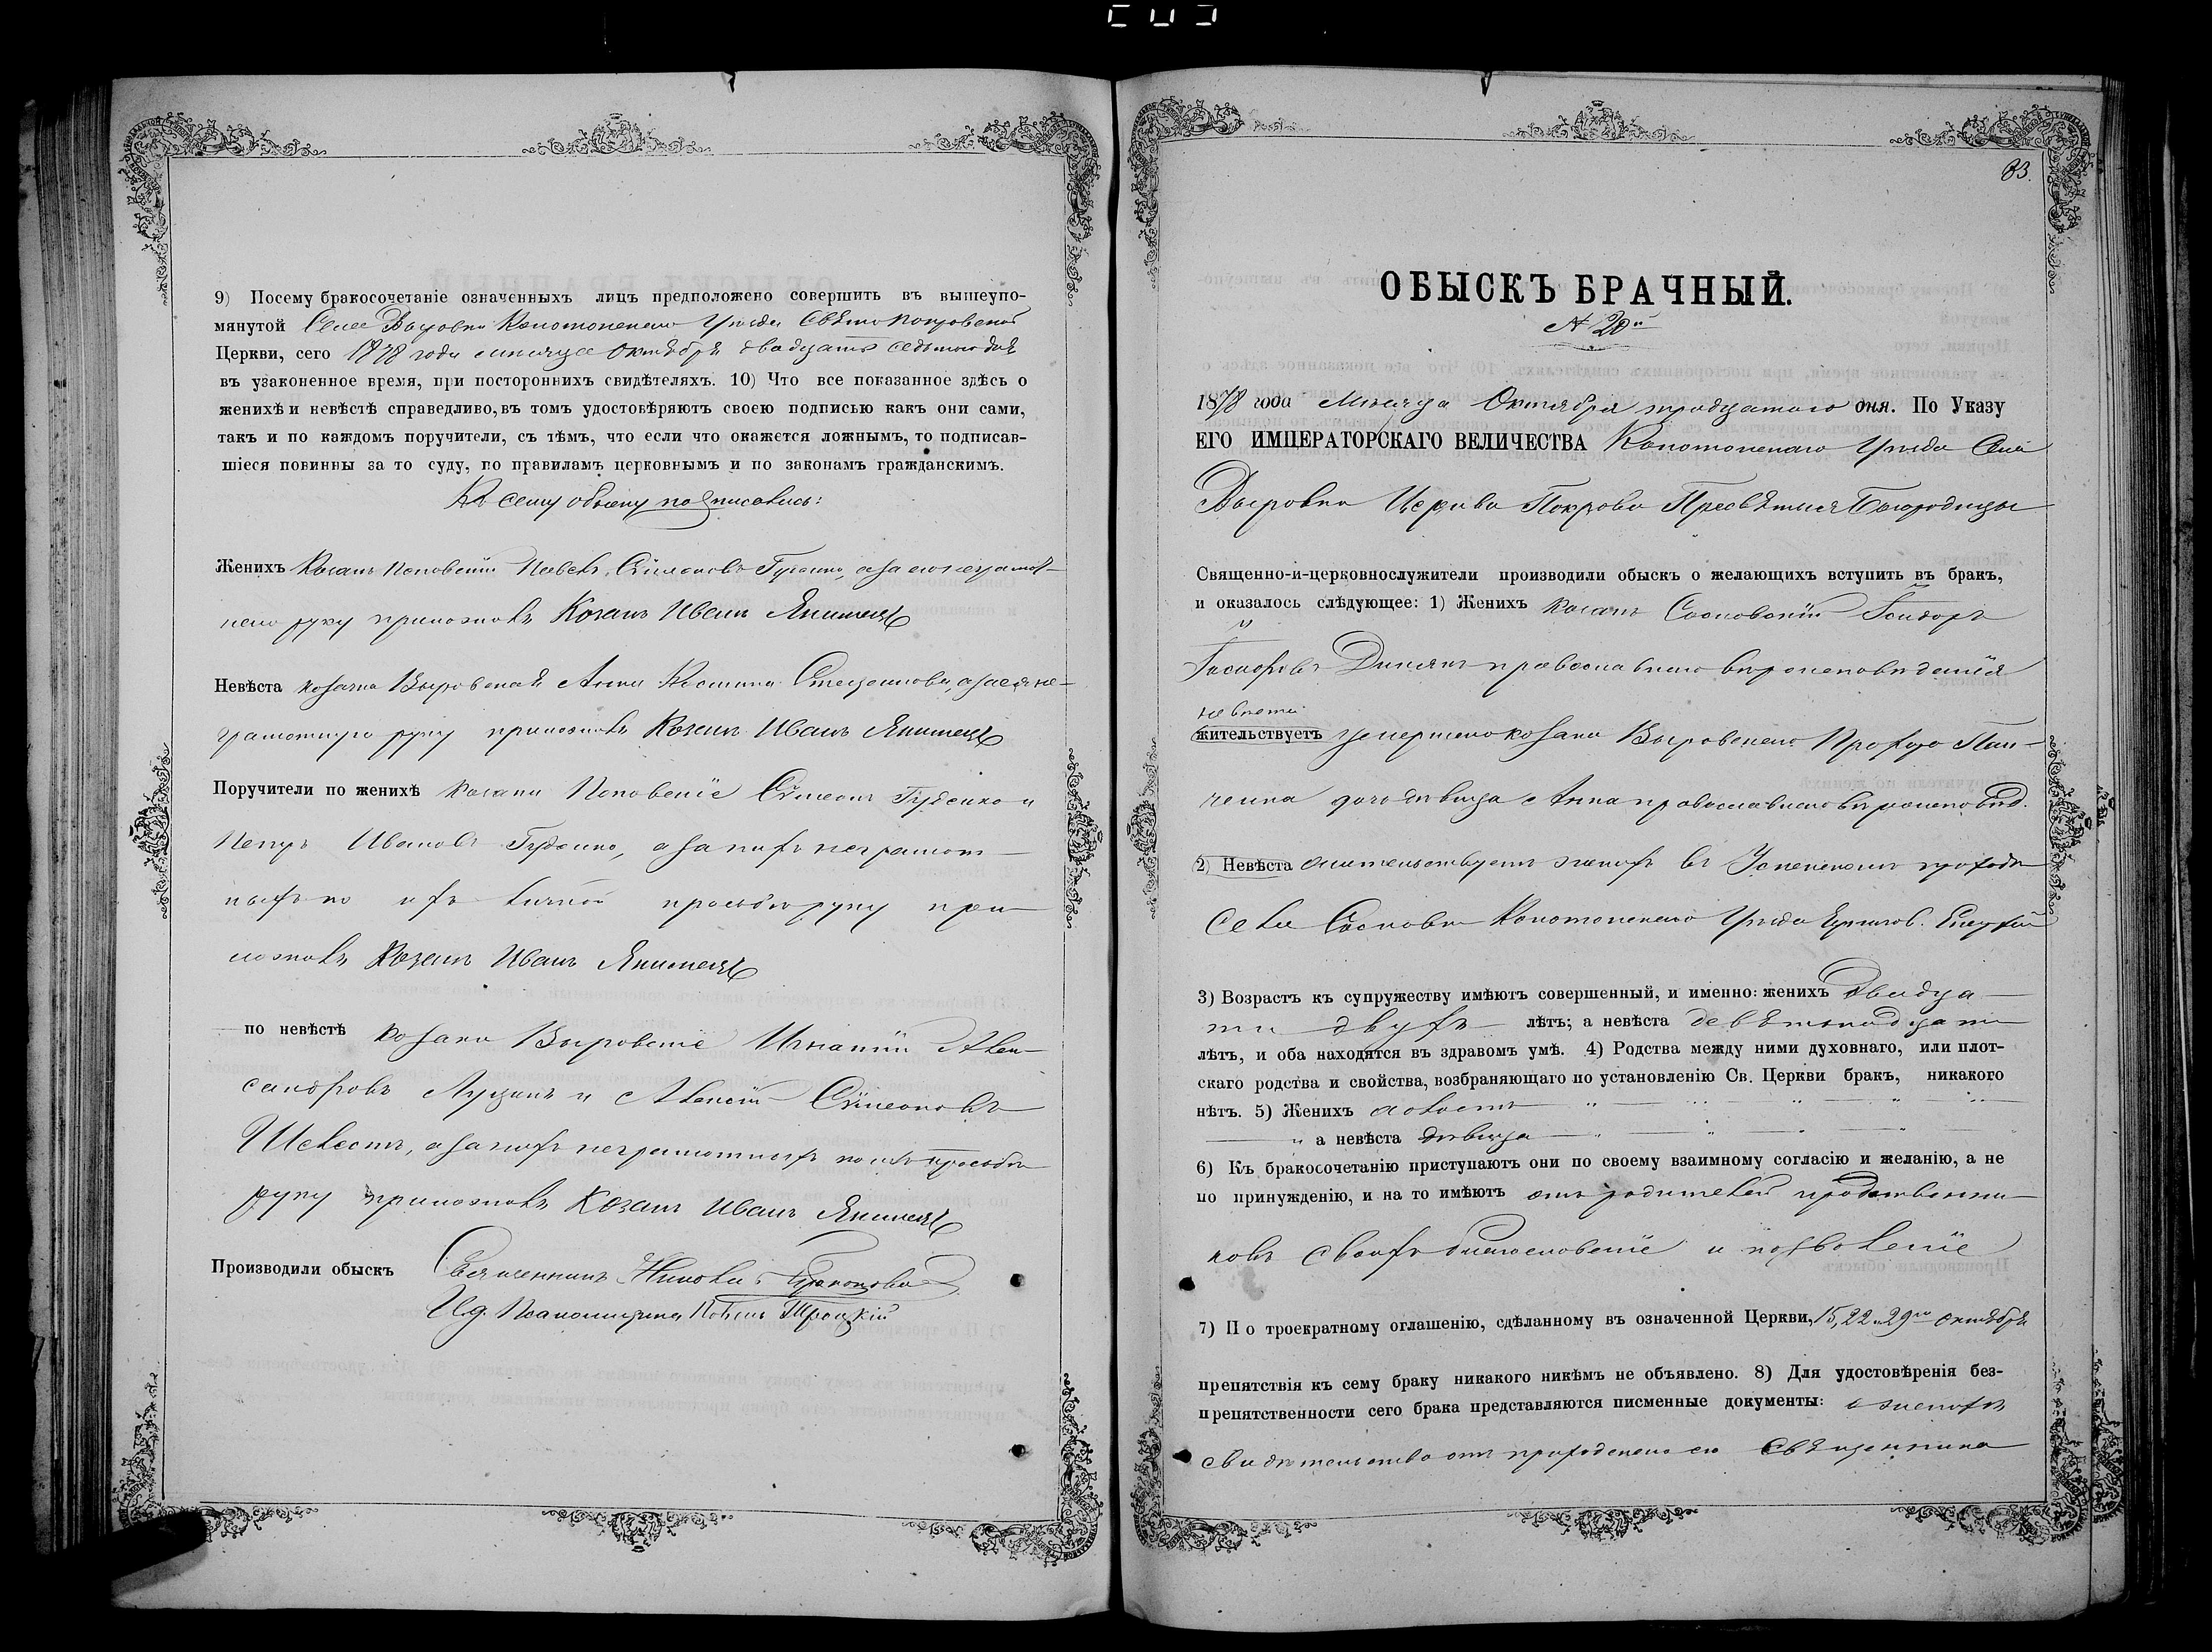 9) Посему бракосочетаніе означенныхъ лицъ предположено совершить въ вышеупо-
мянутой Селе Выровки Конотопскаго Уѣзда Свято Покровской
Церкви, сего 1878 года мѣсяца Октября двадцать седьмого дня
въ узаконенное время, при постороннихъ свидѣтеляхъ. 10) Что все показанное здѣсь о
женихѣ и невѣстѣ справедливо, въ томъ удостовѣряютъ своею подписью какъ они сами,
такъ и по каждомъ поручители, съ тѣмъ, что если что окажется ложнымъ, то подписав-
шіеся повинны за то суду, по правиламъ церковнымъ и по законамъ гражданскимъ.
Къ сему обыску подписались:
Женихъ Козакъ Поповскій Павелъ Симеоновъ, а за его неграмот-
наго руку приложилъ Козакъ Иванъ
Невѣста козачка Выровская Анна, а за ея не-
грамотную руку приложилъ Козакъ Иванъ
Поручители по женихѣ козаки Поповскіе Симеонъ Гузенко и
Петръ Ивановъ Гузенко, а за нихъ неграмот-
ныхъ по ихъ личной просьбѣ руку при-
ложилъ Козакъ Иванъ
по невѣстѣ козаки Выровскіе Игнатій Алек-
сандровъ Луцикъ и Алексій Симеоновъ
Шевель, а за нихъ неграмотныхъ по ихъ просьбѣ
руку приложилъ Козакъ Иванъ
Производили обыскъ Священникъ Николай
И.д. Псаломщика Троцкій
83.
ОБЫСКЪ БРАЧНЫЙ.
№ 20й
1878 года Мѣсяца Октября тридцатого дня. По Указу
ЕГО ИМПЕРАТОРСКАГО ВЕЛИЧЕСТВА Конотопскаго Уѣзда Села
Выровки Церкви Покрова Пресвятыя Богородицы
Священно-и-церковнослужители производили обыскъ о желающихъ вступить въ бракъ,
и оказалось слѣдующее: 1) Женихъ козакъ Сосновскій Исидоръ
православнаго вѣроисповѣданія
невѣста
жительствуетъ умершего козака Выровскаго Прокопа Пан-
ченка дочь дѣвица Анна православнаго вѣроисповѣд.
2) Невѣста жительствуетъ женихъ въ Успенскомъ приходѣ
Села Сосновки Конотопскаго Уѣзда Чернигов. Епархіи
3) Возрастъ къ супружеству имѣютъ совершенный, и именно: женихъ двадца-
ти двухъ лѣтъ; а невѣста девятнадцати
лѣтъ, и оба находятся въ здравомъ умѣ. 4) Родства между ними духовнаго, или плот-
скаго родства и свойства, возбраняющаго по установленію Св. Церкви бракъ, никакого
нѣтъ. 5) Женихъ холостъ
а невѣста дѣвица
6) Къ бракосочетанію приступаютъ они по своему взаимному согласію и желанію, а не
по принужденію, и на то имѣютъ отъ родителей и родственни-
ковъ своихъ благословеніе и позволеніе
7) По троекратному оглашенію, сдѣланному въ означенной Церкви, 15, 22 и 29го октября
препятствія къ сему браку никакого никѣмъ не объявлено. 8) Для удостовѣренія без-
препятственности сего брака представляются писменные документы: о женихѣ
свидѣтельство отъ приходскаго его Священника